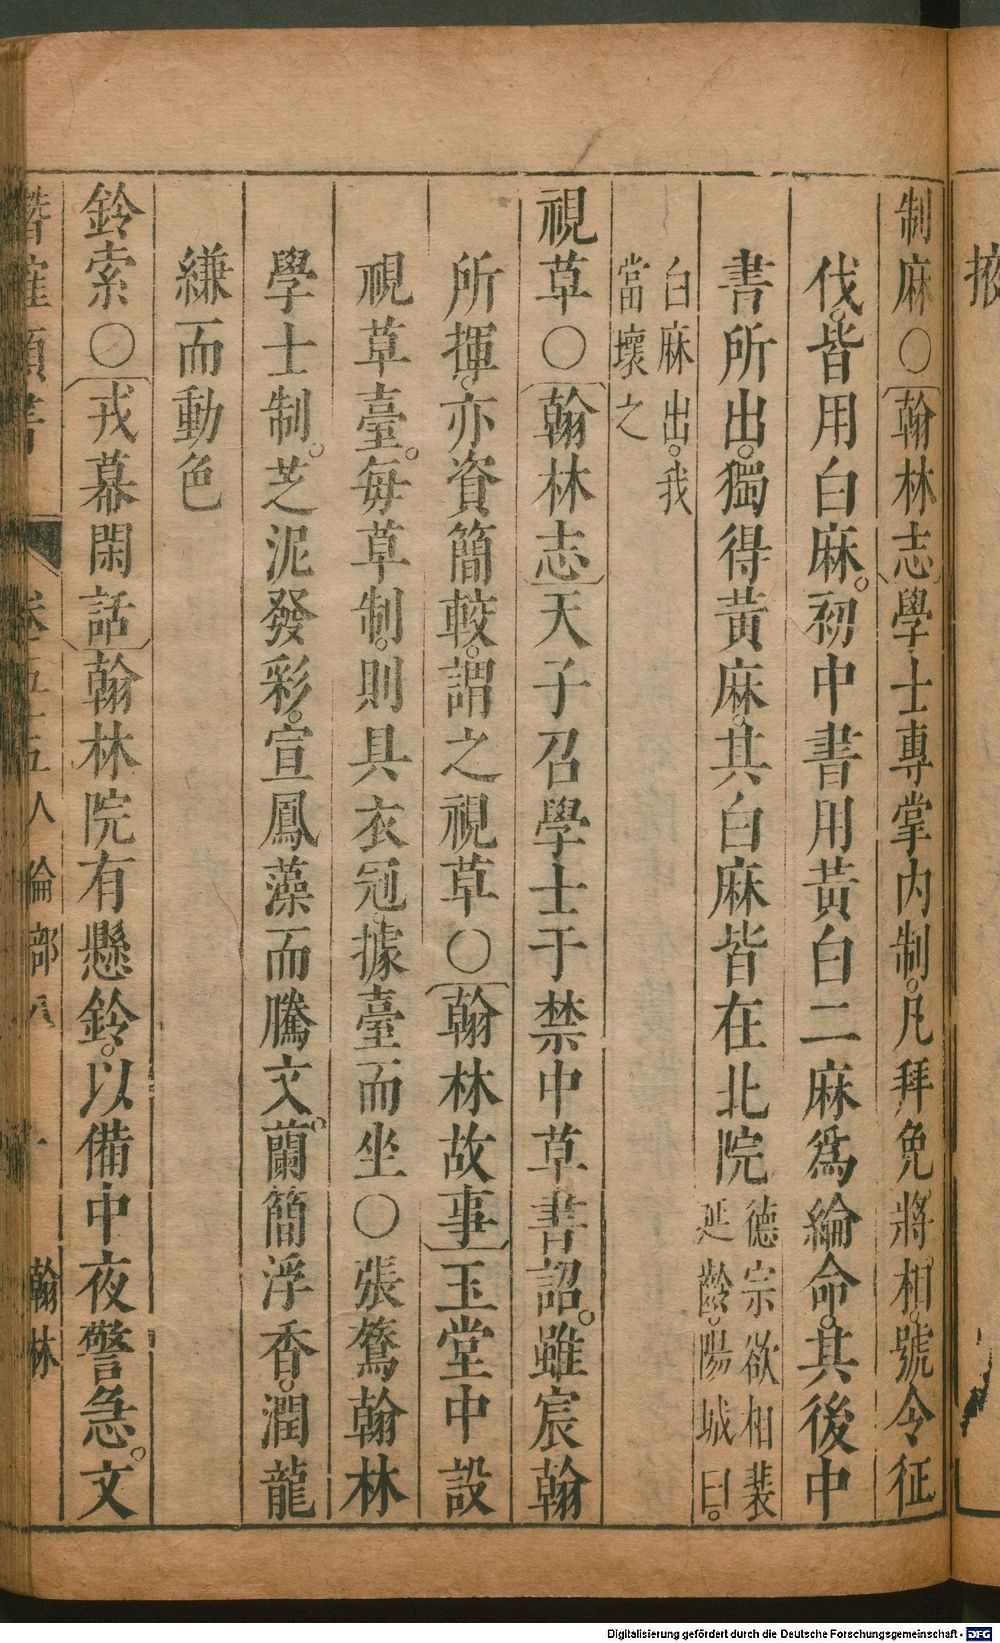 掖
制麻○〔翰林志〕學士專掌內制。凡拜免將相。號令征
伐。皆用白麻。初中書用黃白二麻爲綸命。其後中
書所出。獨得黃麻。其白麻皆在北院德宗欲相裴
延齡。陽城曰。
白麻出。我
當壞之
視草○〔翰林志〕天子召學士于禁中草書詔。雖宸翰
所揮。亦資簡較。謂之視草○〔翰林故事〕玉堂中設
視草臺。每草制。則具衣冠據臺而坐○張鷟翰林
學士制。芝泥發彩。宣鳳藻而騰文。蘭簡浮香。潤龍
縑而動色
鈴索○〔戎幕閑話〕翰林院有懸鈴。以備中夜警急。文
潛確類書 卷五十五 人倫部八 翰林
Digitalisierung gefördert durch die Deutsche Forschungsgemeinschaft - DFG